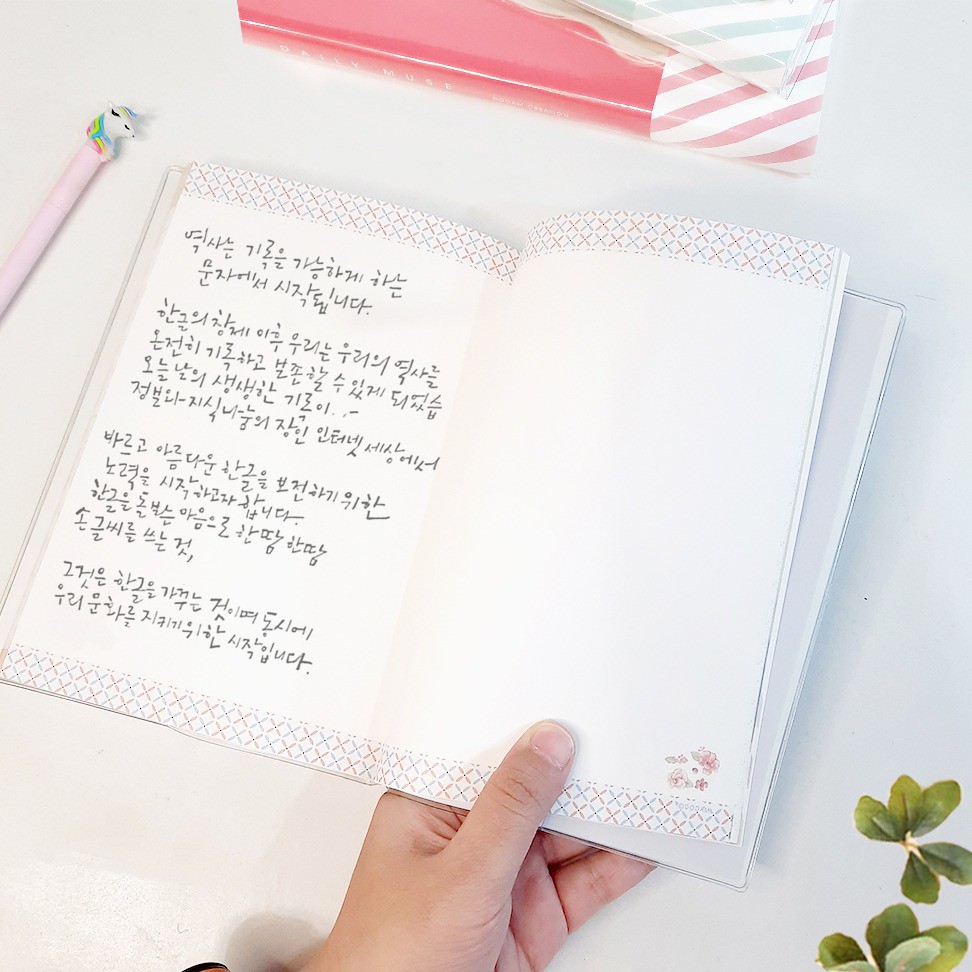 DAILY MUSE
역사는 기록을 가능하게 하는
문자에서 시작됩니다.
한글의 창제 이후 우리는 우리의 역사를
온전히 기록하고 보존할 수 있게 되었습
오늘날의 생생한 기록이..-
정보와 지식나눔의 장인 인터넷 세상에서
바르고 아름다운 한글을 보전하기 위한
노력을 시작하고자 합니다.
한글을 돌보는 마음으로 한땀 한땀
손글씨를 쓰는 것,
그것은 한글을 가꾸는 것이며 동시에
우리 문화를 지키기 위한 시작입니다.